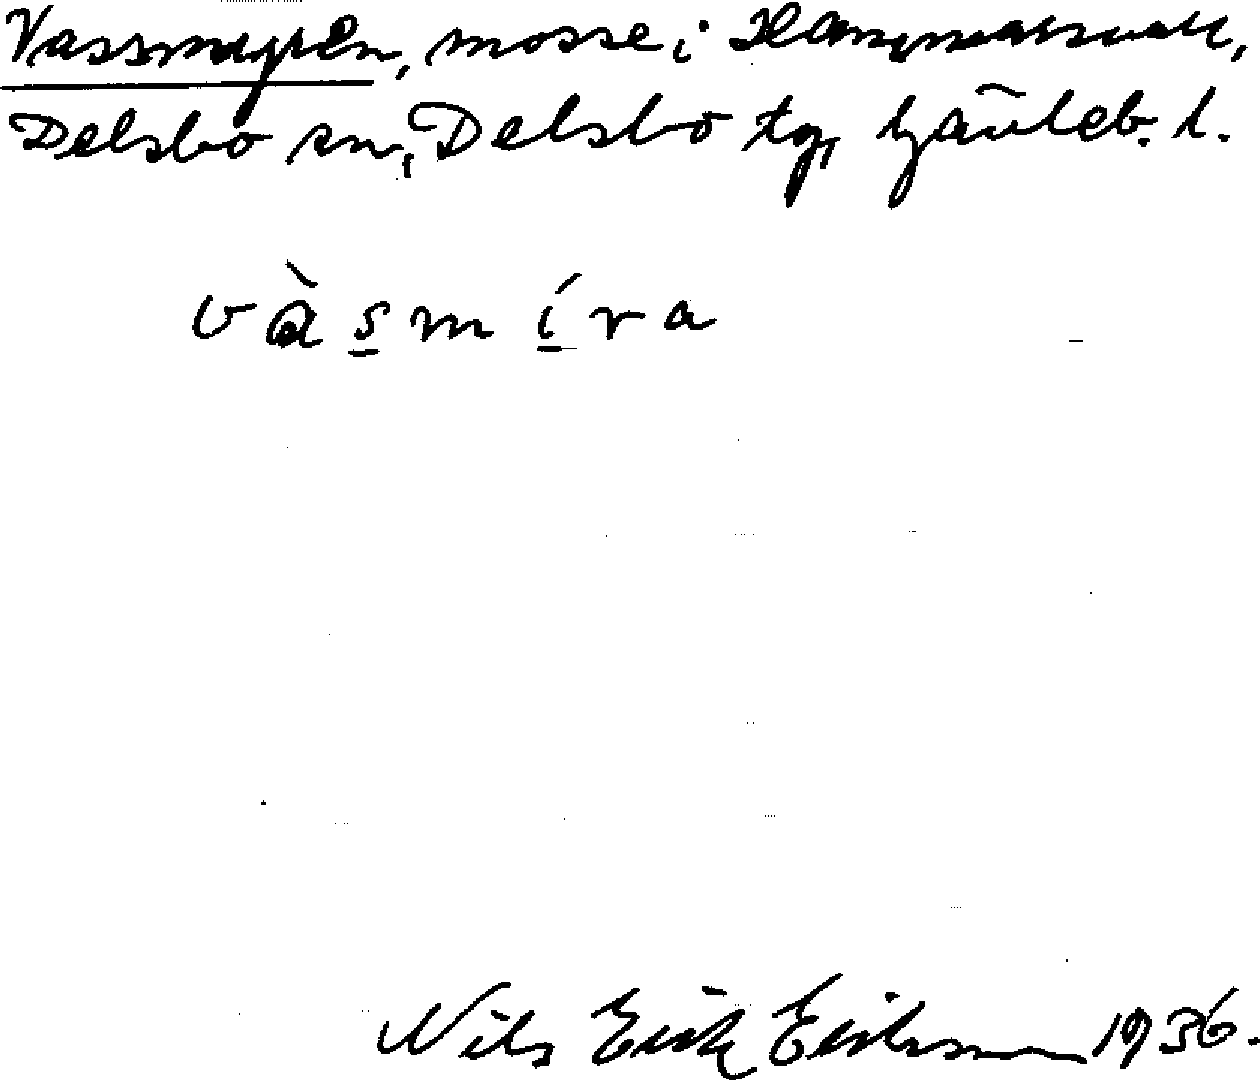 Vassmyren, mosse i Hammarsvall,
Delsbo sn, Delsbo tg, Gävleb. l.
vàsmíra
Nils Erik Eriksson 1936.